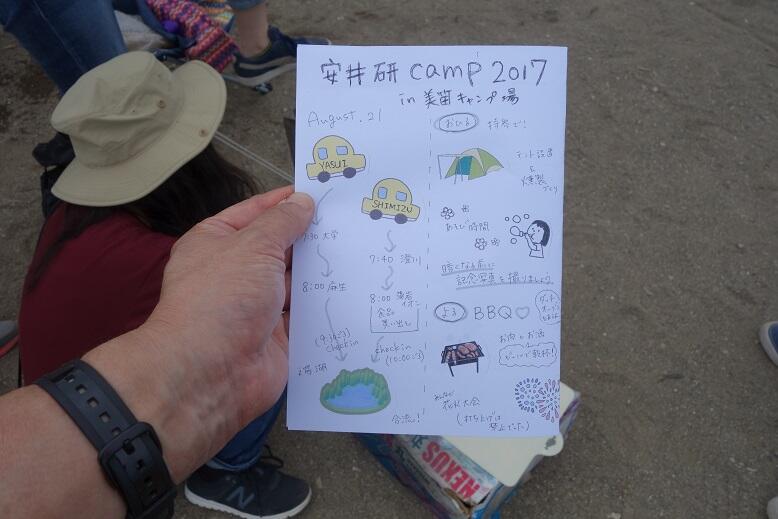 安井研 camp 2017
in 美笛キャンプ場
August. 21
YASUI
SHIMIZU
7:30 大学
7:40 澄川
8:00 麻生
8:00
イオン
食品
買い出し
(9:30ごろ
checkin
checkin
(10:00ごろ
湖
合流!
おひる
持参で!
テント設営
&
燻製
づくり
あそび時間
暗くなる前に
記念写真を撮りましょう
よる
BBQ♡
お肉とお酒
ビールで乾杯!
みんなで
花火大会
(打ち上げは
禁止だった)
NEXUS